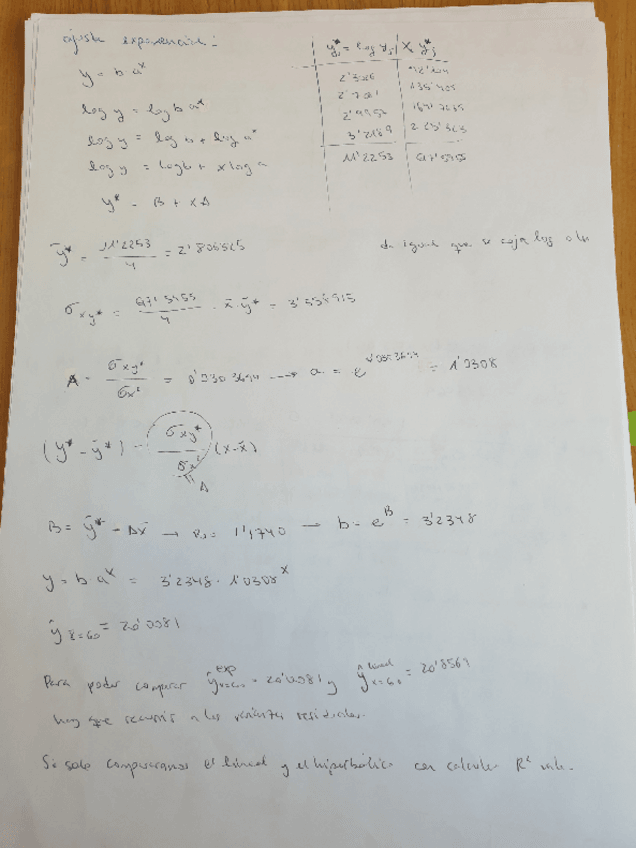 ajuste exponencial:
y = b·a^x
log y = log b a^x
log y = log b + log a^x
log y = log b + x log a
y* = B + xA
y*_j = log y_j | x y*_j
2'3026
2'9957
3'2189
11'2253
ȳ* = 11'2253 / 4 = 2'806325
da igual que se coja log o ln
σxy* = / 4 - x̄·ȳ* =
A = σxy* / σx² = 0'0303694 → a = e^0'0303694 = 1'0308
(y* - ȳ*) = σxy* / σx² (x-x̄)
A
B = ȳ* - Ax̄ → B = 1'1740 → b = e^B = 3'2348
y = b·a^x = 3'2348 · 1'0308^x
ŷ x=60 = 20'0081
Para poder comparar ŷ^exp x=60 = 20'0081 y ŷ^lineal x=60 = 20'8569
hay que recurrir a las varianzas residuales.
Si solo comparamos el lineal y el hiperbólico con calcular R² vale.